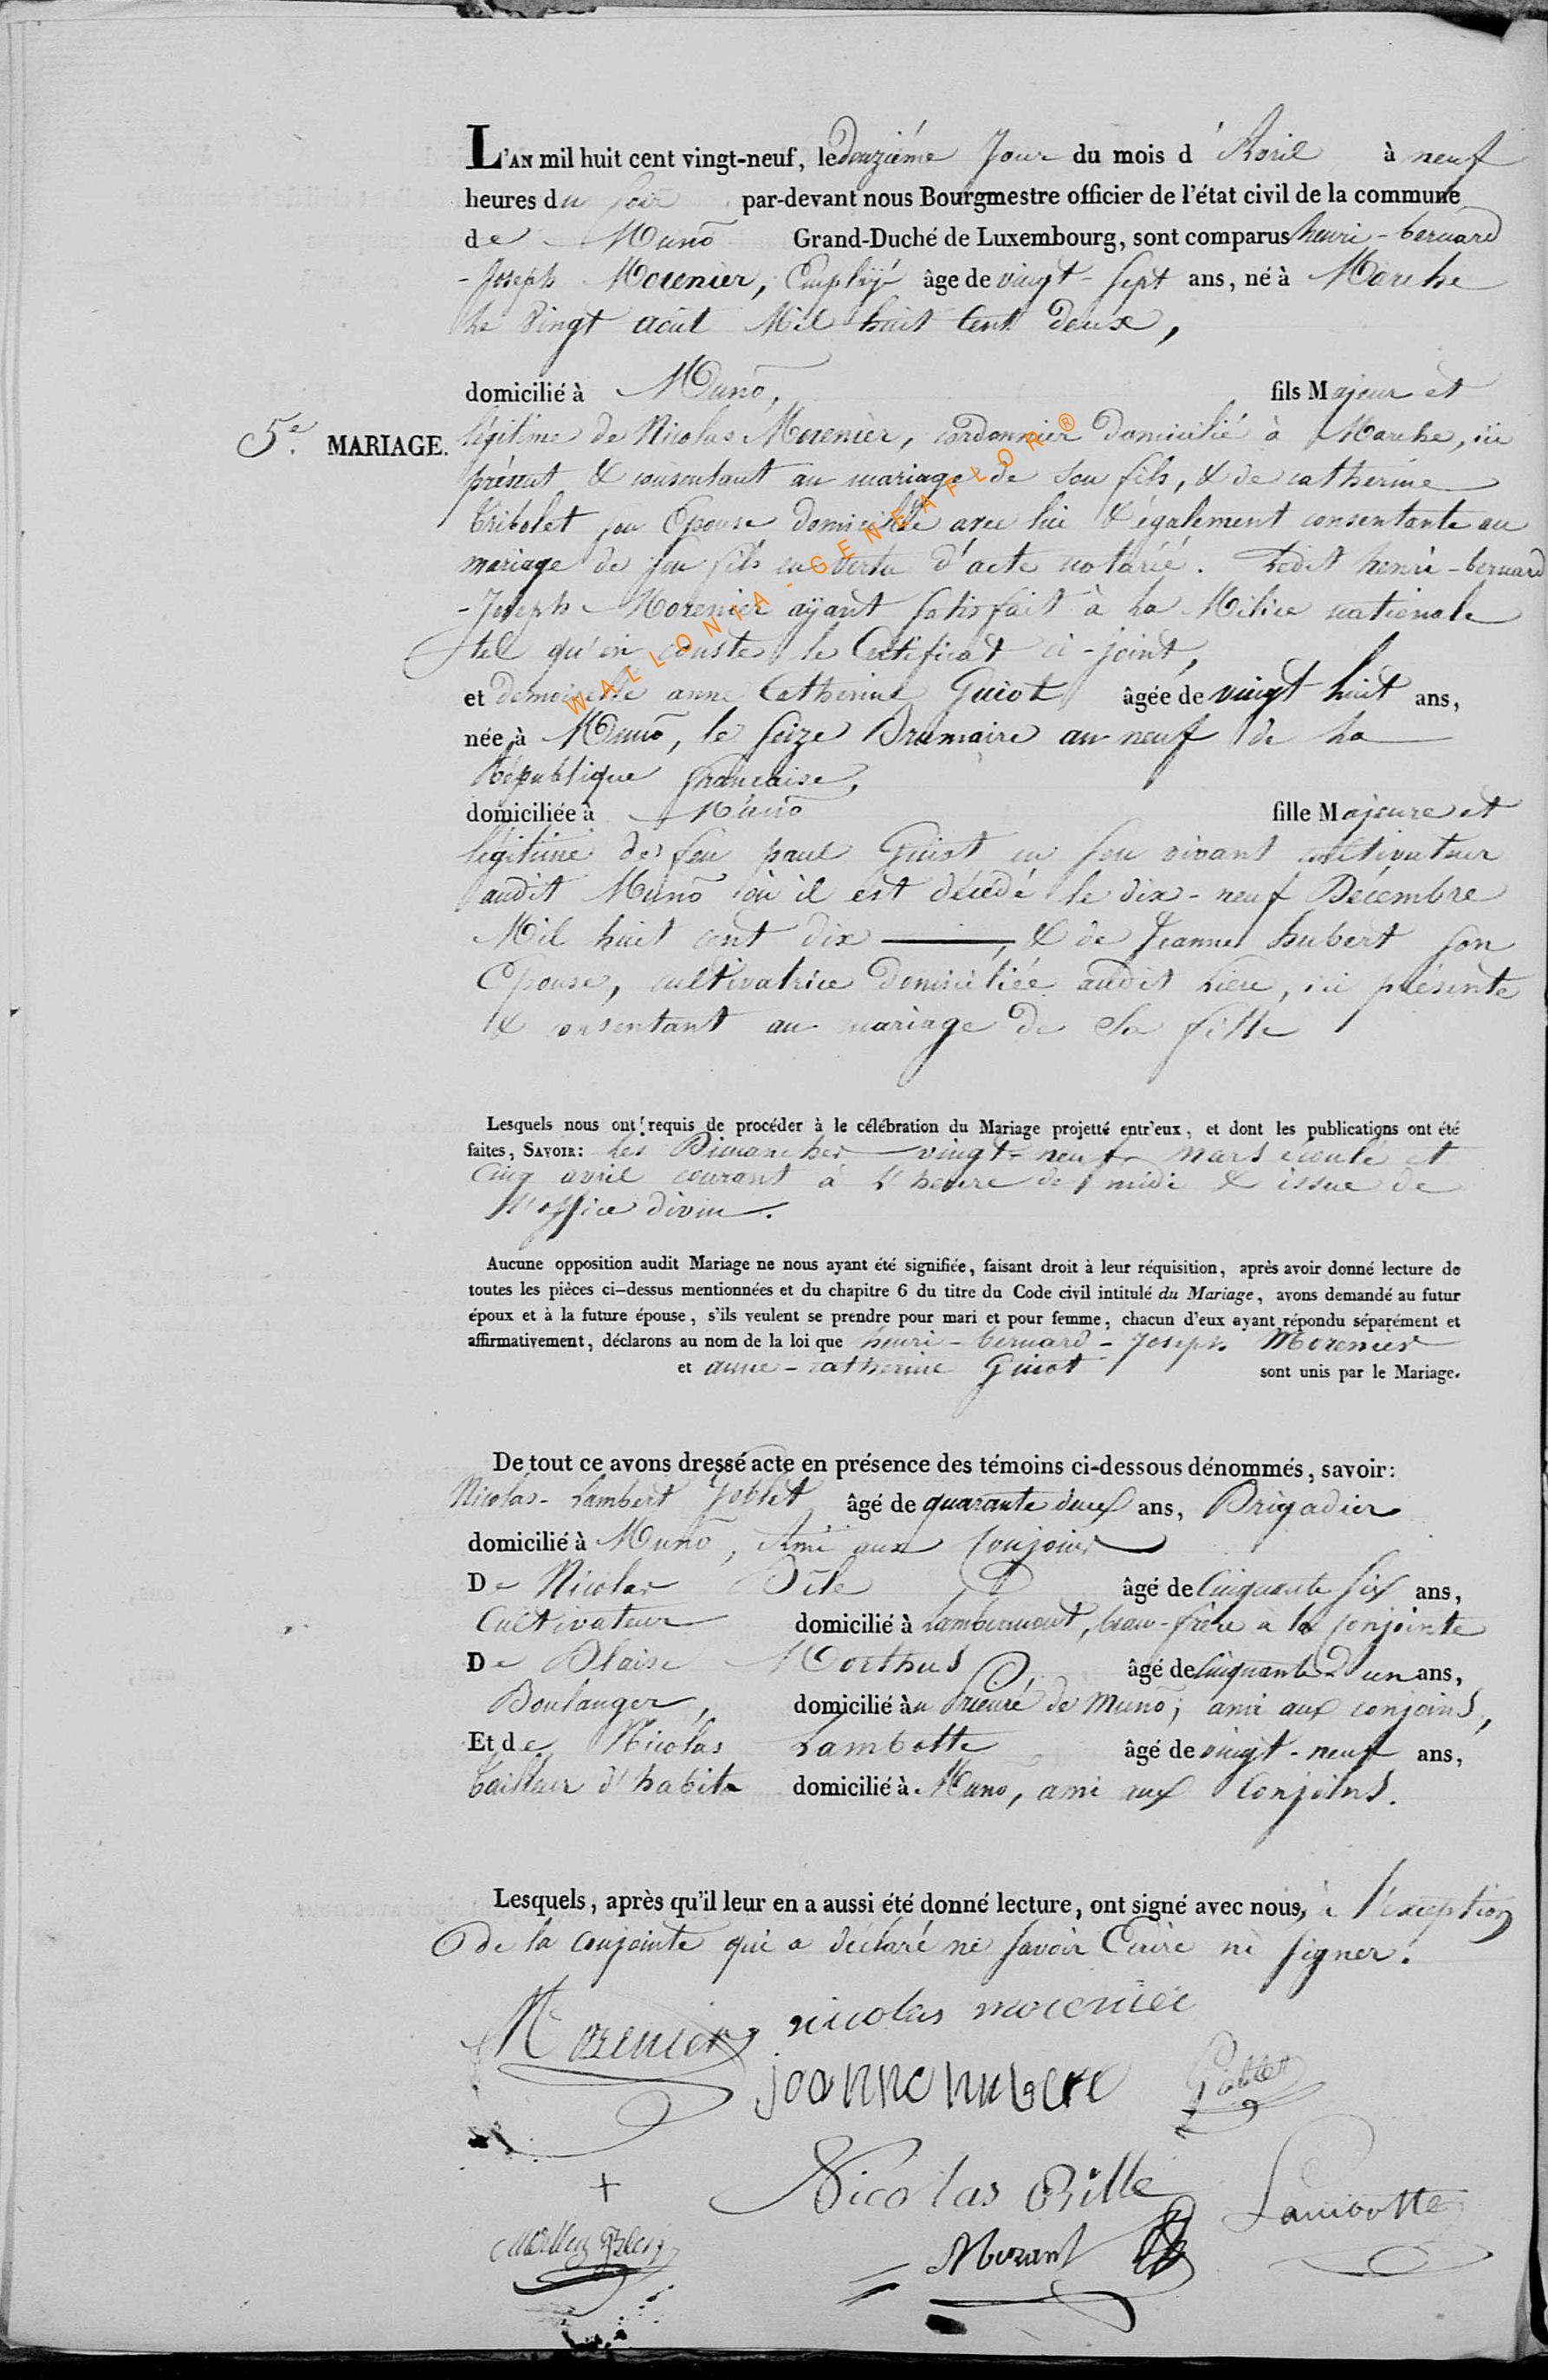 L'AN mil huit cent vingt-neuf, le douzième Jour du mois d'Avril à neuf
heures du Soir par-devant nous Bourgmestre officier de l'état civil de la commune
de Munõ Grand-Duché de Luxembourg, sont comparus henri-bernard
-Joseph Morenier, Employé âge de vingt-sept ans, né à Marche
le Vingt août Mil huit Cent deux,
domicilié à Munõ, fils Majeur et
5e. MARIAGE. légitime de Nicolas Morenier, cordonnier domicilié à Marche, ici
présent & consentant au mariage de son fils, & de catherine
Tribolet son Epouse domiciliée avec lui & également consentante au
mariage de son fils en vertu d'acte notarié. Ledit henri-bernard
-Joseph Morenier aÿant satisfait à La Milice nationale
tel qu'en conste le Certificat ci-joint,
et demoiselle anne Catherine Guiot âgée de vingt huit ans,
née à Munõ, le seize Brumaire an neuf de La
République française,
domiciliée à Munõ fille Majeure et
légitime de feu paul Guiot en son vivant cultivateur
audit Munõ où il est décédé le dix-neuf Décembre
Mil huit cent dix, & de Jeanne hubert son
Epouse, cultivatrice Domiciliée audit Lieu, ici présente
& consentant au mariage de Sa fille
Lesquels nous ont requis de procéder à le célébration du Mariage projetté entr'eux, et dont les publications ont été
faites, SAVOIR: les Dimanches vingt-neuf mars écoulé et
Cinq avril courant à L'heure de midi & issue de
l'office divin.
Aucune opposition audit Mariage ne nous ayant été signifiée, faisant droit à leur réquisition, après avoir donné lecture de
toutes les pièces ci-dessus mentionnées et du chapitre 6 du titre du Code civil intitulé du Mariage, avons demandé au futur
époux et à la future épouse, s'ils veulent se prendre pour mari et pour femme, chacun d'eux ayant répondu séparément et
affirmativement, déclarons au nom de la loi que henri-bernard-Joseph Morenier
et anne-catherine Guiot sont unis par le Mariage.
De tout ce avons dressé acte en présence des témoins ci-dessous dénommés, savoir:
Nicolas-Lambert Goblet âgé de quarante deux ans, Brigadier
domicilié à Munõ, Ami aux Conjoins
De Nicolas Bile âgé de Cinquante six ans,
Cultivateur domicilié à Lambermont, beau-frère à la Conjointe
De Blaise Morthus âgé de Cinquante un ans,
Boulanger, domicilié au Prieuré de Munõ; ami aux conjoins,
Et de Nicolas Lambotte âgé de vingt-neuf ans,
tailleur d'habits domicilié à Munõ, ami aux Conjoins.
Lesquels, après qu'il leur en a aussi été donné lecture, ont signé avec nous, à l'exception
de la conjointe qui a déclaré ne savoir Ecrire ni signer.
Morenier nicolas morenier
joanne hubert Goblet
Nicolas Bille Lambotte
+
WALLONIA - GENEAFLOR®